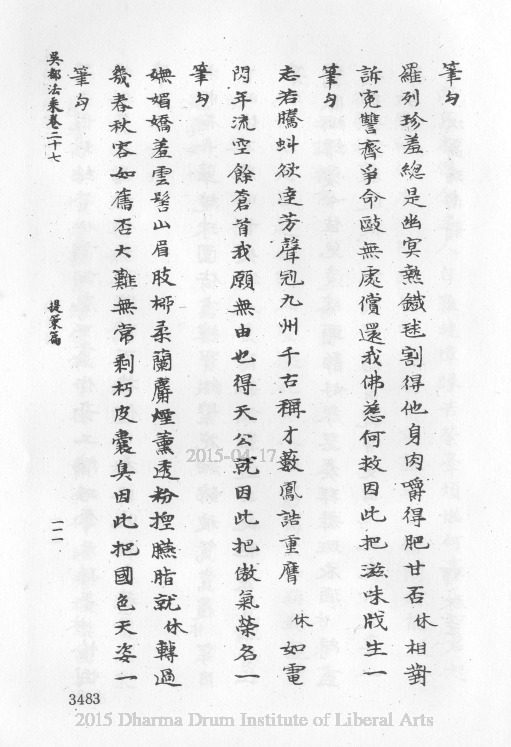 筆勾
羅列珍羞總是幽冥熱鐵毬割得他身肉嚼得肥甘否休相對
訴冤讐齊爭命毆無處償還我佛慈何救因此把滋味戕生一
筆勾
志若騰蚪欲達芳聲冠九州千古稱才藪鳳誥重膺休如電
閃年流空餘蒼首我願無由也得天公就因此把傲氣榮名一
筆勾
嫵媚嬌羞雲髻山眉肢柳柔蘭麝煙薰透粉揑臙脂就休轉過
幾春秋容如舊否大難無常剩朽皮囊臭因此把國色天姿一
筆勾
吳都法乘卷二十七 提策篇 一二
3483
2015-04-17
2015 Dharma Drum Institute of Liberal Arts